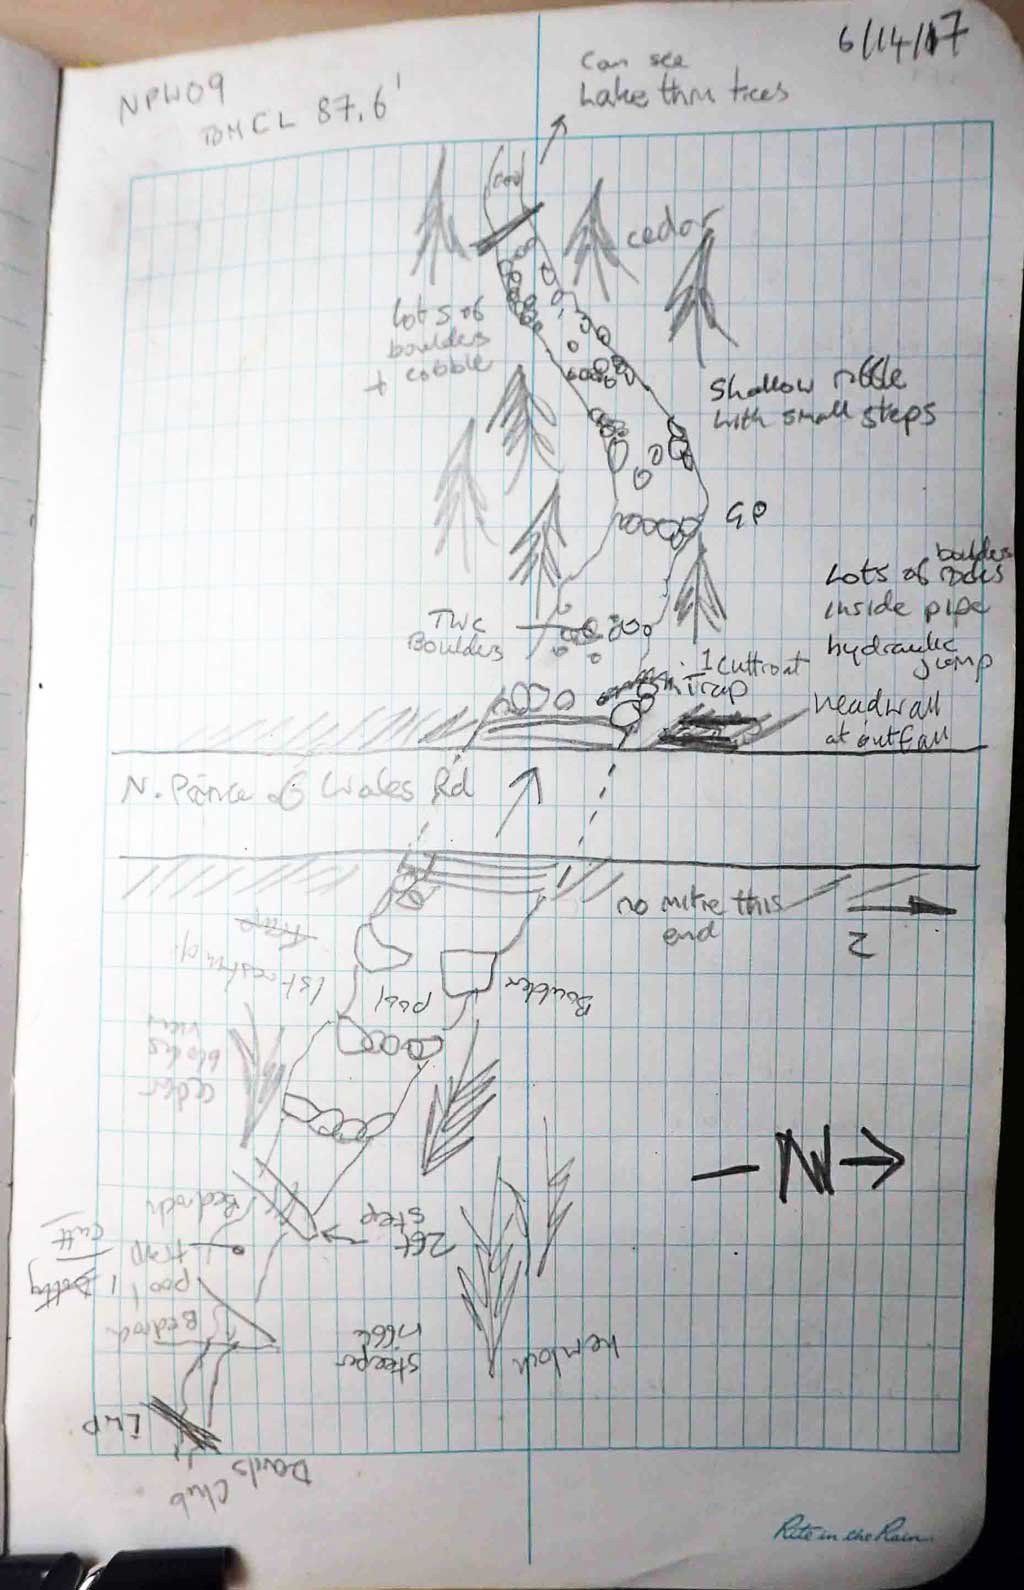 6/14/17
NPW09
BMCL 87.6'
Can see
Lake thru trees
cedar
Lots of
boulders
+ cobble
Shallow riffle
with small steps
GP
boulders
Lots of rocks
inside pipe
hydraulic
jump
TWC
Boulders
1 cuttroat
in Trap
headwall
at outfall
N. Prince of Wales Rd
no mitre this
end
N
Trap
Boulder
pool
cedar
blocks
view
N
Bedrock
2ft
step
cutt
trap
pool
1 Dolly
Bedrock
steeper
riffle
hemlock
LWP
Davids Club
Rite in the Rain